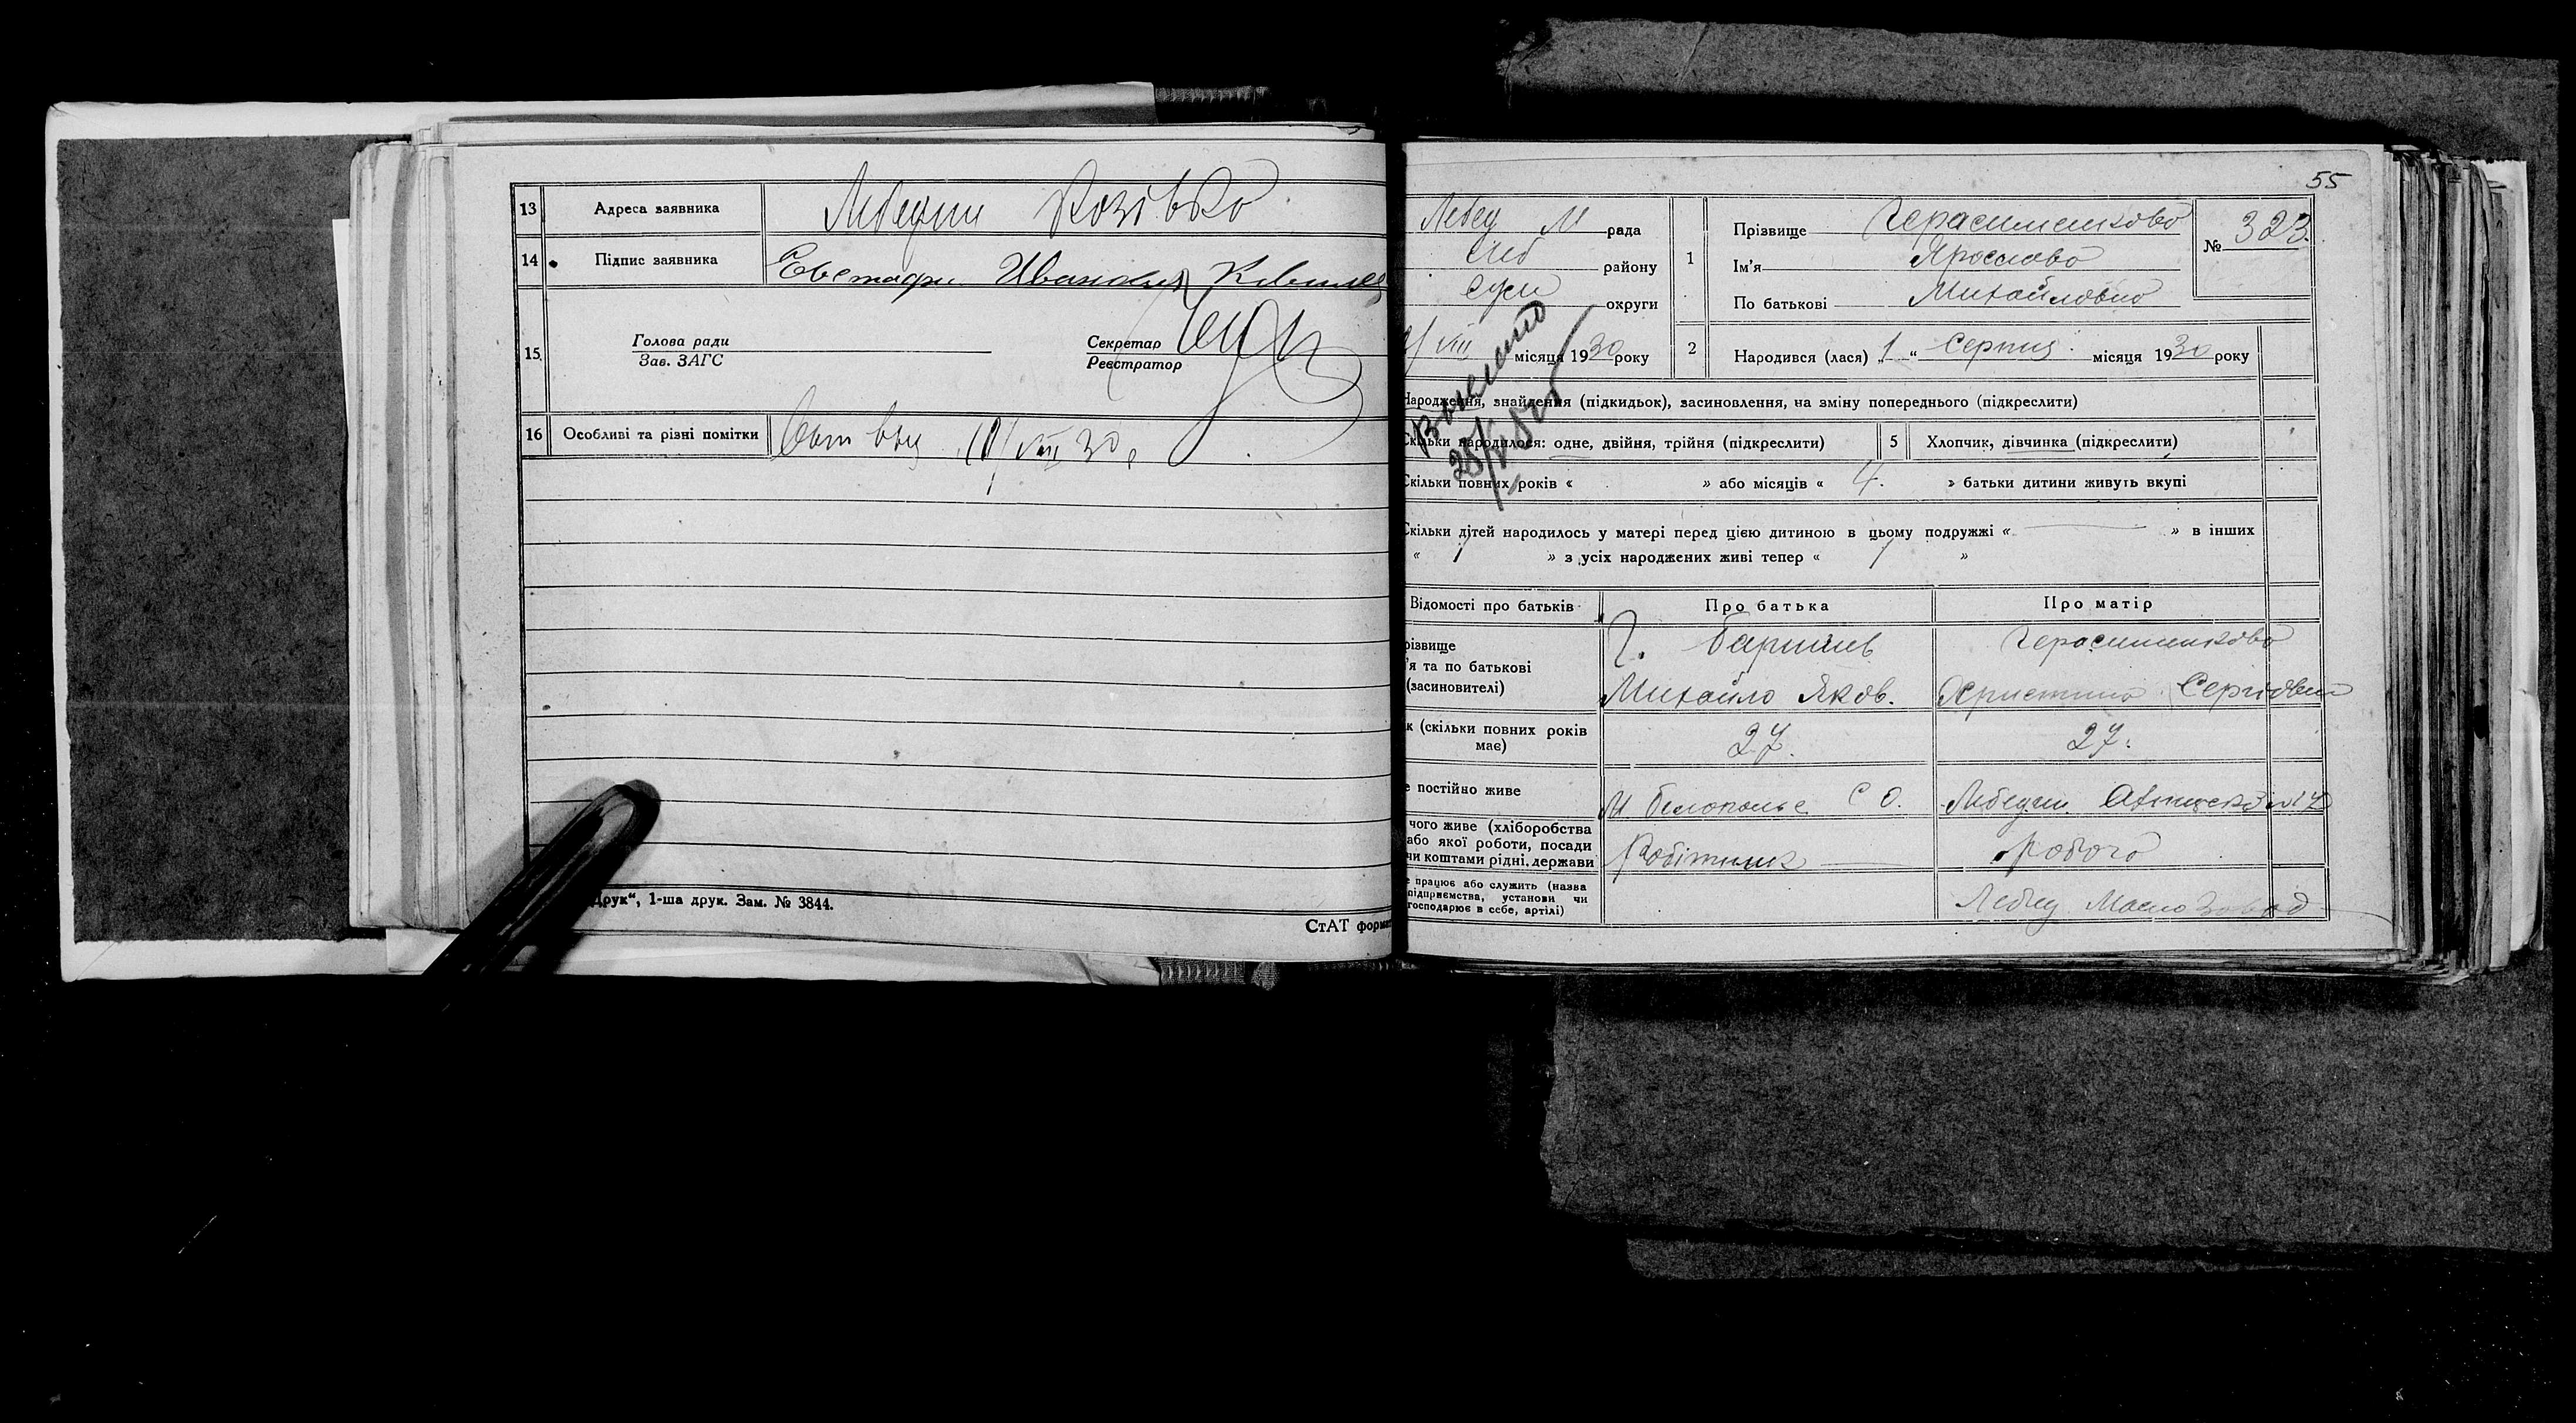 13 Адреса заявника Лебедин Козівка
14 Підпис заявника Евстафи Иванович
15. Голова ради
Зав. ЗАГС
Секретар
Реєстратор
16 Особливі та різні помітки 11/VIII 30
Друк", 1-ша друк. Зам. № 3844.
СтАТ форма
55
Лебед М рада
Леб району
Сум округи
VIII місяця 1930 року
1 Прізвище Герасименкова
Ім'я Ярослава
По батькові Михайловна
№ 323.
2 Народився (лася) „1" Серпня місяця 1930 року
Народження, знайдення (підкидьок), засиновлення, на зміну попереднього (підкреслити)
Скільки народилося: одне, двійня, трійня (підкреслити) 5 Хлопчик, дівчинка (підкреслити)
Скільки повних років « » або місяців « 4. » батьки дитини живуть вкупі
Скільки дітей народилось у матері перед цією дитиною в цьому подружжі « — » в інших
« 1 » з усіх народжених живі тепер « 1 »
Відомості про батьків Про батька Про матір
різвище
'я та по батькові
(засиновителі)
Г. Герасименкова
Михайло Яков. Христина Сергіовна
к (скільки повних років
має)
27. 27.
е постійно живе М Белополье С О. Лебедин
чого живе (хліборобства
або якої роботи, посади
чи коштами рідні, держави
Робітник робоча
е працює або служить (назва
підприємства, установи чи
господарює в себе, артілі)
Лебед Маслозавод